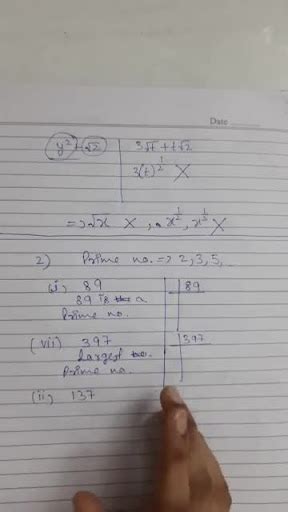 Date
y² + √2 3√t + t√2
3(t)^1/2 X
=> √x X, x^1/2, x^1/3 X
2) Prime no. => 2, 3, 5, _
(i) 89 89
89 is a
Prime no.
(vii) 397 397
Largest
Prime no.
(ii) 137